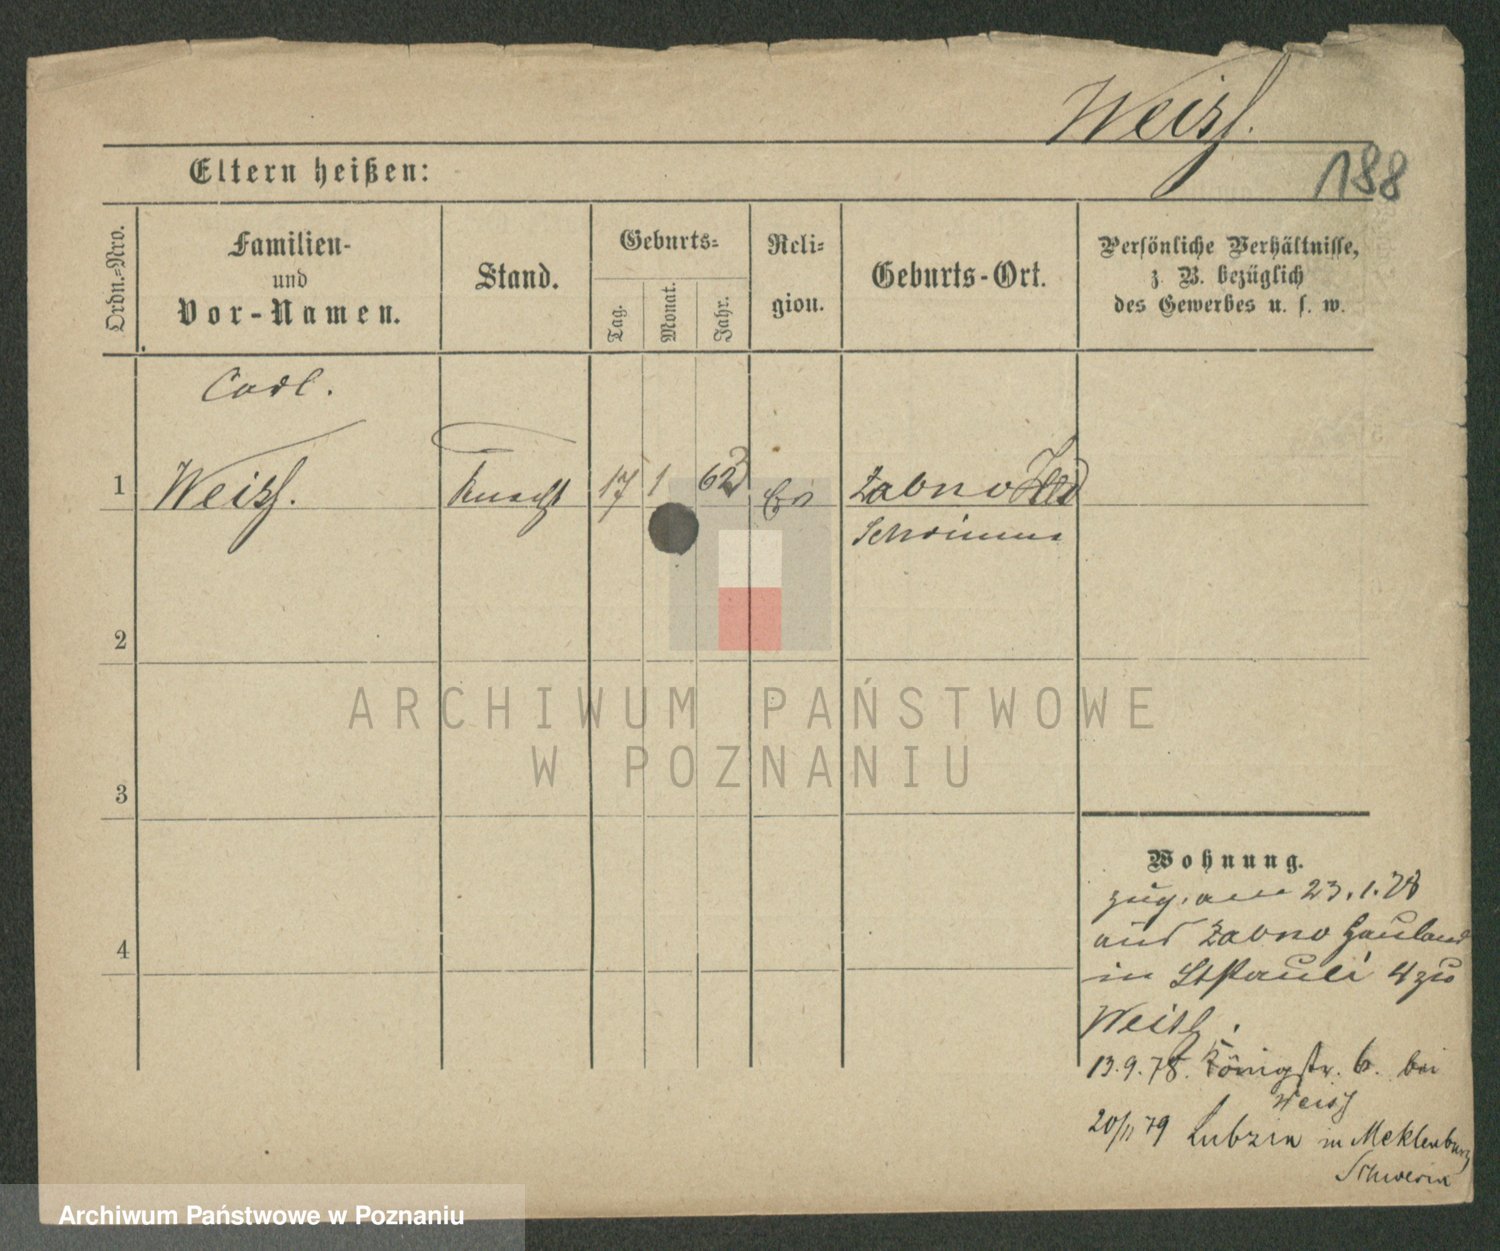 Weiss.
188
Eltern heißen:
Ordn.-Nro.
Familien-
und
Vor-Namen.
Stand.
Geburts-
Tag.
Monat.
Jahr.
Reli-
gion.
Geburts-Ort.
Persönliche Verhältnisse,
z. B. bezüglich
des Gewerbes u. s. w.
Carl.
1 Weiss. Knecht 17 1 62 Ev Zabno Hld
Schrimm
2
3
4
ARCHIWUM PAŃSTWOWE
W POZNANIU
Wohnung.
zug. am 23.1.78
aus Zabno Hauland
in St Pauli 4 zu
Weiss.
13.9.78. Königstr. 6. bei
Weiss
20/11 79 Lubzin in Meklenburg
Schwerin
Archiwum Państwowe w Poznaniu